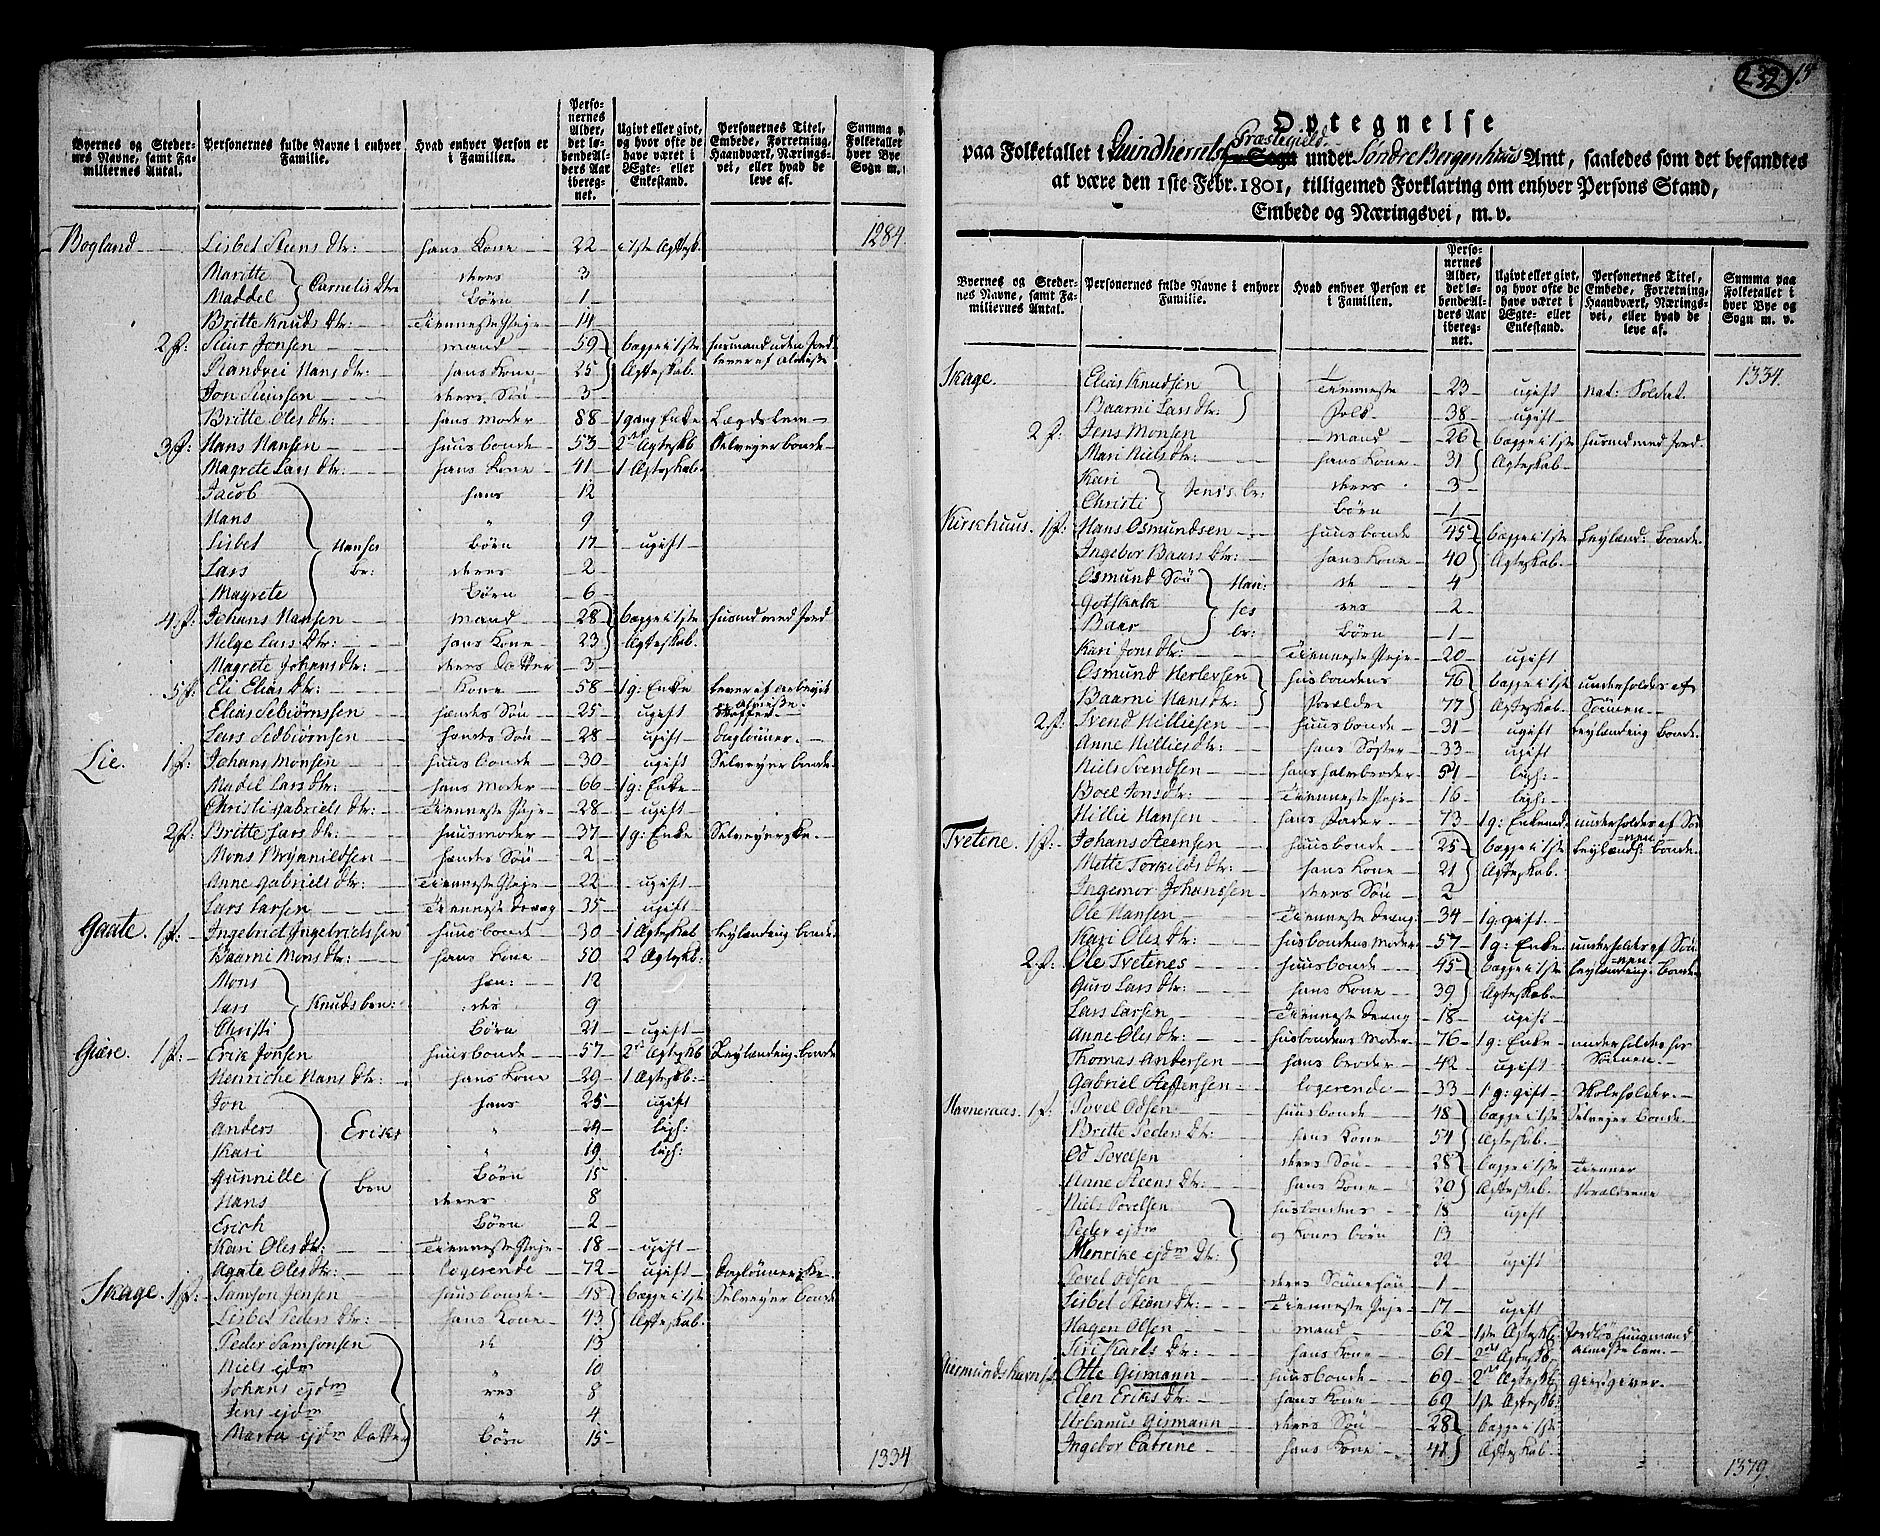 Byernes og Steder-nes Navne, samt Fa-miliernes Antal. Personernes fulde Navne i enhver Familie. Hvad enhver Person er i Familien. Perso-nernes Alder, det lø-bende Al-ders Aar ibereg-net. Ugivt eller givt, og hvor ofte de have været i Ægte- eller Enkestand. Personernes Titel, Embede, Forretning, Haandværk, Nærings-vei, eller hvad de leve af.
Bogland Lisbet Steens Dtr: hans Kone 22 1ste Ægtesk. 1284
Maritte deres 3
Maddel Cornelis Dtr Børn 1
Britte Knuds Dtr: Tienneste Pige 14
2 f: Siur Jonsen mand 59 begge i 1ste husmand uden Jord
Randvei Hans Dtr: hans Kone 25 Ægteskab. lever af Almisse
Jon Siursen deres Søn 3
Britte Oles Dtr: hans Moder 88 1 gang Enke Lægdslem
3 f: Hans Hansen huusbonde 53 2det Ægteskb Selveyer bonde
Magrete Lars Dtr: hans Kone 41 1 Ægteskab.
Jacob hans 12
Hans " 9
Lisbet Hanses Børn 17 ugift
Lars br: deres 2
Magrete Børn 6
4 f: Johans Hansen mand 28 begge i 1ste husmd med Jord
Helge Lars Dtr: hans Kone 23 Ægteskab.
Magrete Johans Dtr: deres Datter 3
5 f: Eli Elias Dtr: Kone 58 1 g: Enke lever af Arbeyde
Elias Sebiørnsen hendes Søn 25 ugift Almisse.
Lars Sebiørnsen hendes Søn 28 ugift daglønner.
Lie. 1 f: Johans Monsen huusbonde 30 ugift Selveyer bonde
Madel Lars Dtr: hans Moder 66 1 g: Enke
Christi Gabriels Dtr: Tienneste Pige 28 ugift
2 f: Britte Lars Dtr: huusmoder 37 1 g: Enke Selveyerske.
Mons Brynnildsen hendes Søn 2
Anne Gabriels Dtr: Tienneste Pige 22 ugift
Lars Larsen Tienneste Dreng 35 ugift
Gaate. 1 f: Ingebrict Ingebrictssen huusbonde 30 1 Ægteskab Leylænding bonde
Baarni Mons Dtr: hans Kone 50 2 Ægteskb:
Mons hen: 12
Lars Knuds ben: :des 9
Christi Børn 21 ugift
Giære. 1 f: Erik Jonsen huusbonde 57 2det Ægteskb Leylænding bonde
Henriche Hans Dtr: hans Kone 29 1 Ægteskab:
Jon hans 25 ugift
Anders Eriks " 29 ligh:
Kari " 19 ligh:
Gunnille Ben Børn 15
Hans deres 8
Erich Børn 2
Kari Oles Dtr: Tienneste Pige 18 ugift
Agate Oles Dtr: logerende 72 ugift Daglønnerske
Skage. 1 f: Samson Jensen huusbonde 48 begge i 1ste Selveyer bonde
Lisbet Peders Dtr: hans Kone 43 Ægteskab.
Peder Samsonsen de 13
Niels ejdm " 10
Johans ejdm res 8
Jens ejdm 4
Marta ejdm Datter Børn 15
1334
232 15
Optegnelse
paa Folketallet i Quindherrids Præstegield under Søndre Bergenhuus Amt, saaledes som det befandtes
at være den 1ste Febr. 1801, tilligemed Forklaring om enhver Persons Stand,
Embede og Næringsvei, m. v.
Byernes og Steder-nes Navne, samt Fa-miliernes Antal. Personernes fulde Navne i enhver Familie. Hvad enhver Person er i Familien. Perso-nernes Alder, det lø-bende Al-ders Aar ibereg-net. Ugivt eller givt, og hvor ofte de have været i Ægte- eller Enkestand. Personernes Titel, Embede, Forretning, Haandværk, Nærings-vei, eller hvad de leve af. Summa paa Folketallet i hver Bye og Sogn m. v.
Skage. Elias Knudsen Tienneste 23 ugift nat: Soldat. 1334.
Baarni Lars Dtr: Folk 38 ugift
2 f: Jens Monsen mand 26 begge i 1ste husmd med Jord.
Mari Niels Dtr: hans Kone 31 Ægteskab
Kari deres 3
Christi Jens's br: Børn 1
Kirschuus. 1 f: Hans Osmundsen huusbonde 45 begge i 1ste Leylænd: bonde
Ingebor Baars Dtr: hans Kone 40 Ægteskab.
Osmund Søn Han: de 4
Gotskalk ses res 2
Baar br: Børn 1
Kari Jons Dtr: Tienneste Pige 20 ugift
Osmund Herlevsen husbondens 76 begge i 1ste underholdes af
Baarni Hans Dtr: Forældre 77 Ægteskab. Sønnen
2 f: Svend Hilliesen huusbonde 31 ugift Leylænding bonde
Anne Hillies Dtr: hans Søster 33 ugift
Niels Svendsen hans halvbroder 54 ligh:
Boel Jons Dtr: Tienneste Pige 16 ligh:
Hillie Hansen hans Fader 73 1 g: Enkemd underholdes af Sønnen
Tvetene. 1 f: Johans Steensen huusbonde 25 begge i 1ste Leylænd: bonde
Mette Torkilds Dtr: hans Kone 21 Ægteskab.
Ingemor Johanssen deres Søn 2
Ole Hansen Tienneste Dreng 34 1 g: gift.
Kari Oles Dtr: husbondens Moder 57 1 g: Enke underholdes af Sønnen
2 f: Ole Tvetenes huusbonde 45 begge i 1ste Leylænding bonde
Guro Lars Dtr: hans Kone 39 Ægteskab
Lars Larsen Tienneste Dreng 18 ugift
Anne Oles Dtr: husbondens Moder 76 1 g: Enke underholdes hos
Thomas Andersen hans broder 42 ugift Sønnen
Gabriel Steffensen logerende 33 1 g: gift Skoleholder.
Havneraas. 1 f: Povel Odsen huusbonde 48 begge i 1ste Selveyer bonde
Britte Peders Dtr: hans Kone 54 Ægteskab.
Od Povelsen deres Søn 28 begge i 1ste Tienner
Anne Steens Dtr: hans Kone 20 Ægteskab. Forældrene
Niels Povelsen husbondens 18 ugift
Peder ejdm og Kones børn 13
Henrike ejdm Dtr: 22 ugift
Povel Odsen deres Sønnesøn 1
Lisbet Steens Dtr: Tienneste Pige 17 ugift
Hagen Olsen mand 62 1ste Ægteskb. Jordløs huusmand
Siri Karls Dtr: hans Kone 61 2det Ægteskb. Almisse lem.
Giermundshavn 1 f: Otte Geimann huusbonde 69 2det Ægteskb giestgiver.
Elen Eriks Dtr: hans Kone 69 1ste Ægteskb:
Urbanus Gismann deres Søn 28 begge i 1ste
Ingebor Catrine hans Kone 41 Ægteskab.
1379